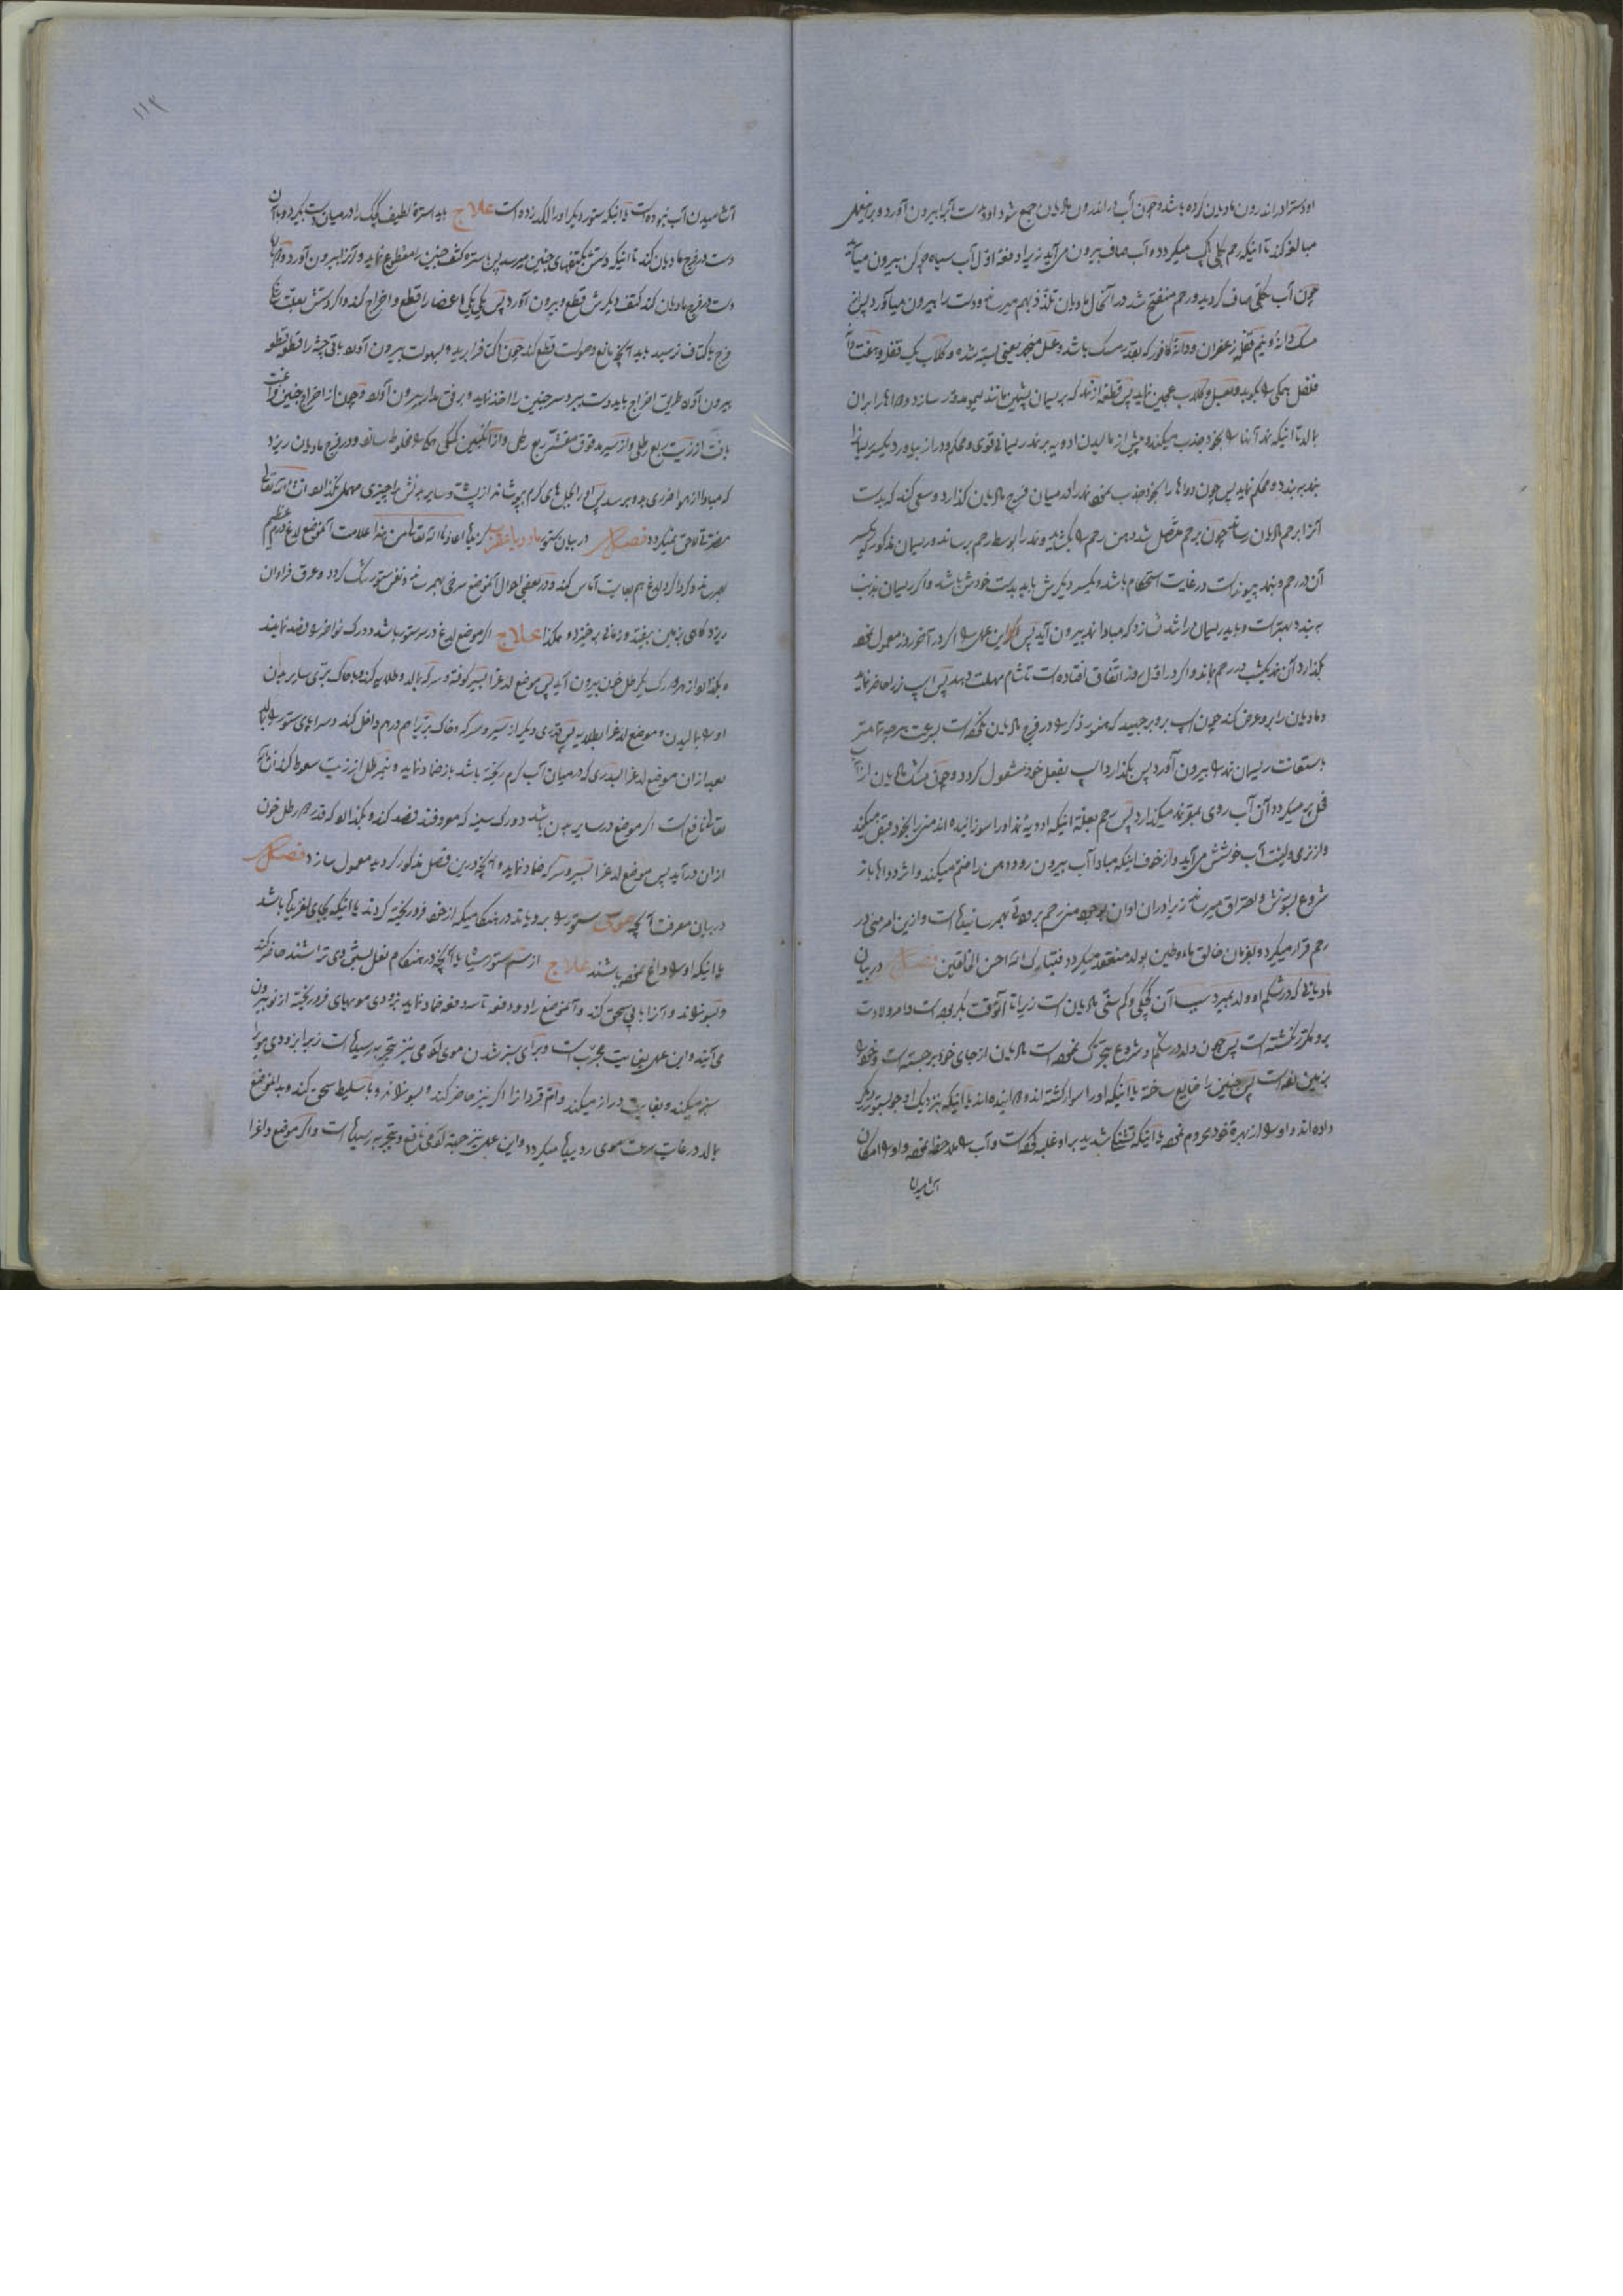 او دست را در اندرون مادیان کرده باشد و چون آب در اندرون مادیان جمع شود او بدست آنرا بیرون آورد و برینعمل
مبالغه کند تا اینکه رحم بکلی پاک میگردد و آب صاف بیرون می‌آید زیرا دفعه اول آب سیاه چرکن بیرون میآید
چون آب بکلی صاف گردید و رحم منفتح شد در آنحال مادیان تلذذ بهم میرساند و دست را بیرون میآورد پس از
مشک دانهٔ و نیم قفله زعفران و دانهٔ کافور که بقدر مشک باشد و عسل منجمد یعنی بسته شده و گلاب یک قفله و هفت دانه
فلفل همگی را بکوبد و بعسل و گلاب عجین نماید پس قطعه از نمد که بریسمان پشمین مانند لیمو مدور سازد و دواها را بران
بمالد تا اینکه نمد آنها را بخود جذب میکند و پیش از مالیدن ادویه بر نمد ریسمانی قوی و محکم و دراز بیاورد یکسر ریسمانرا
بنمد به بندد و محکم نماید پس چون دواها را بخود جذب نمود نمد را در میان فرج مادیان گذارد و سعی کند که بدست
آنرا برحم مادیان رساند چون برحم متصل شد دهن رحم را بگشاید و نمد را بوسط رحم برساند و ریسمان مذکور که یکسر
آن در رحم و بنمد پیوند است در غایت استحکام باشد و یکسر دیگرش باید بدست خودش باشد و اگر ریسمان بذنب
به بندد بهتر است و باید ریسمان را شد نسازد که مبادا نمد بیرون آید پس اگر این عمل را اگر در آخر روز معمول نمود
بگذارد آن نمد یکشب در رحم بماند و اگر در اول روز اتفاق افتاده است تا شام مهلت دهد پس اسپ نر را حاضر نماید
و مادیان را برو عرض کند چون اسپ برو بر جهید که هنوز ذکر را در فرج مادیان نکرده است بسرعت هر چه تمامتر
باستعانت ریسمان نمد را بیرون آورد پس بگذارد اسپ بفعل خود مشغول گردد و چون شکم مادیان از آب
فحل پر میگردد آن آب روی بقعر نمد میگذارد پس رحم بعلت اینکه ادویهٔ نمد او را سوزانیده اند منی را بخود قبض میکند
و از نرمی و لینت آب خوشش می‌آید و از خوف اینکه مبادا آب بیرون رود دهن را ضم میکند و اثر دواها باز
شروع بسوزش و احتراق میرساند زیرا در آن اوان بوجود منی رحم برودتی بهم رسانیده است و ازین امر منی در
رحم قرار میگیرد و بفرمان خالق ماء و طین بولد منعقد میگردد فتبارک الله احسن الخالقین فصل در بیان
مادیانی که در شکم او ولد بمیرد سبب آن کچگی و کم سنی مادیان است زیرا تا آنوقت بکر بوده است و امر ولادت
برو مکرر نگشته است پس چون ولد در شکم او شروع بتحرک نموده است مادیان از جای خود برجسته است و خود را
بزمین زده است پس جنین را ضایع ساخته یا اینکه او را سوار گشته اند و دوانیده اند یا اینکه بنزدیک او جو بستور دیگر
داده اند و او را از بهرهٔ خود محروم نموده یا اینکه تشنگی شدید برو غلبه کرده است و آب را ملاحظه نموده و او را امکان
آشامیدن
آشامیدن آب نبوده است یا اینکه ستور دیگر او را لگد زده است علاج باید استرهٔ لطیف کوچک را در میان دست بگیرد و با آن
دست در فرج مادیان کند تا اینکه دستش بکتفهای جنین میرسد پس باستره کتف جنین را مقطوع نماید و آنرا بیرون آورد و بازهمان
دست در فرج مادیان کند کتف دیگرش قطع و بیرون آورد پس یکی یکی اعضا را قطع و اخراج کند و اگر دستش بعلت تنگی
فرج باکتاف نرسید باید آنچه مانع دخولست قطع کند چون اکتاف را برید و بسهولت بیرون آورد باقی جثه را قطعه قطعه
بیرون آورد طریق اخراج باید دست ببرد و سر جنین را اخذ نماید و برفق مدار بیرون آورد و چون از اخراج جنین فراغت
یافت از زیت ربع رطلی و از سیر مدقوق مقشر ربع رطل و از انگبین همگی را مخلوط سازد و در فرج مادیان ریزد
که مبادا از هوا ضرری بدو برسد پس او را بجلهای گرم بپوشاند از پشت و سایر بدنش را چیزی مهمل نگذارد انشاء الله تعالی
مضرت لاحق نمیگردد فصل در بیان ستور مار و یا عقرب گزیده اعاذنا الله تعالی من هذا علامت آنموضع لدغ ورم عظیم
بهم رساند و گرداگرد لدغ هم بغایت آماس کند و در بعضی احوال آنموضع سرخی بهم رساند و نفس ستور تنگ گردد و عرق فراوان
ریزد گاهی بزمین بیفتد و زمانی برخیزد و هکذا علاج اگر موضع لدغ در سر ستور باشد دو رگ نواظر را فصد نمایند
و بگذارد از هر دو رگ یک رطل خون بیرون آید پس موضع لدغ را بسیر کوفته و سرکه بمالد و طلایه کند و با خاک سایر بدن
او را بمالیدن و موضع لدغ را بطلایه پس قدری دیگر از سیر و سرکه و خاک تربت باهم در هم داخل کند و سراپای ستور را بمالد
بعد از آن موضع لدغ را بسدری که در میان آب گرم ریخته باشد باز ضماد نماید و نیم رطل از زیت سعوط کند انشاء الله
تعالی نافع است اگر موضع در سایر بدن باشد دو رگ سینه که معروفند فصد کند و بگذارد که قدر دو رطل خون
از آن در آید پس موضع لدغ را بسیر و سرکه ضماد نماید و آنچه درین فصل مذکور گردید معمول سازد فصل
در بیان معرفت آنچه موی ستور را برویاند در هنگامیکه از خود فرو ریخته گردند یا اینکه بجای لغزیده باشد
یا اینکه او را داغ نموده باشند علاج از سم ستور سیاه یا آنچه در هنگام نعل بستن وی تراشند حاضر کند
و بسوزاند و آنرا با پی سحق کند و آنموضع را دو دفعه تا سه دفعه ضماد نماید بزودی مویهای فرو ریخته از نو بیرون
می‌آیند و این عمل بغایت مجرب است و برای سبز شدن موی آدمی نیز بتجربه رسیده است زیرا بزودی مو را
سبز میکند و بغایت دراز میکند و ام قردانرا اگر نیز حاضر کند و بسوزاند و با سلیط سحق کند و بدانموضع
بمالد در غایت سرعت موی روییده میگردد و این عمل نیز جهت آدمی نافع و بتجربه رسیده است و اگر موضع داغرا
۱۱۲